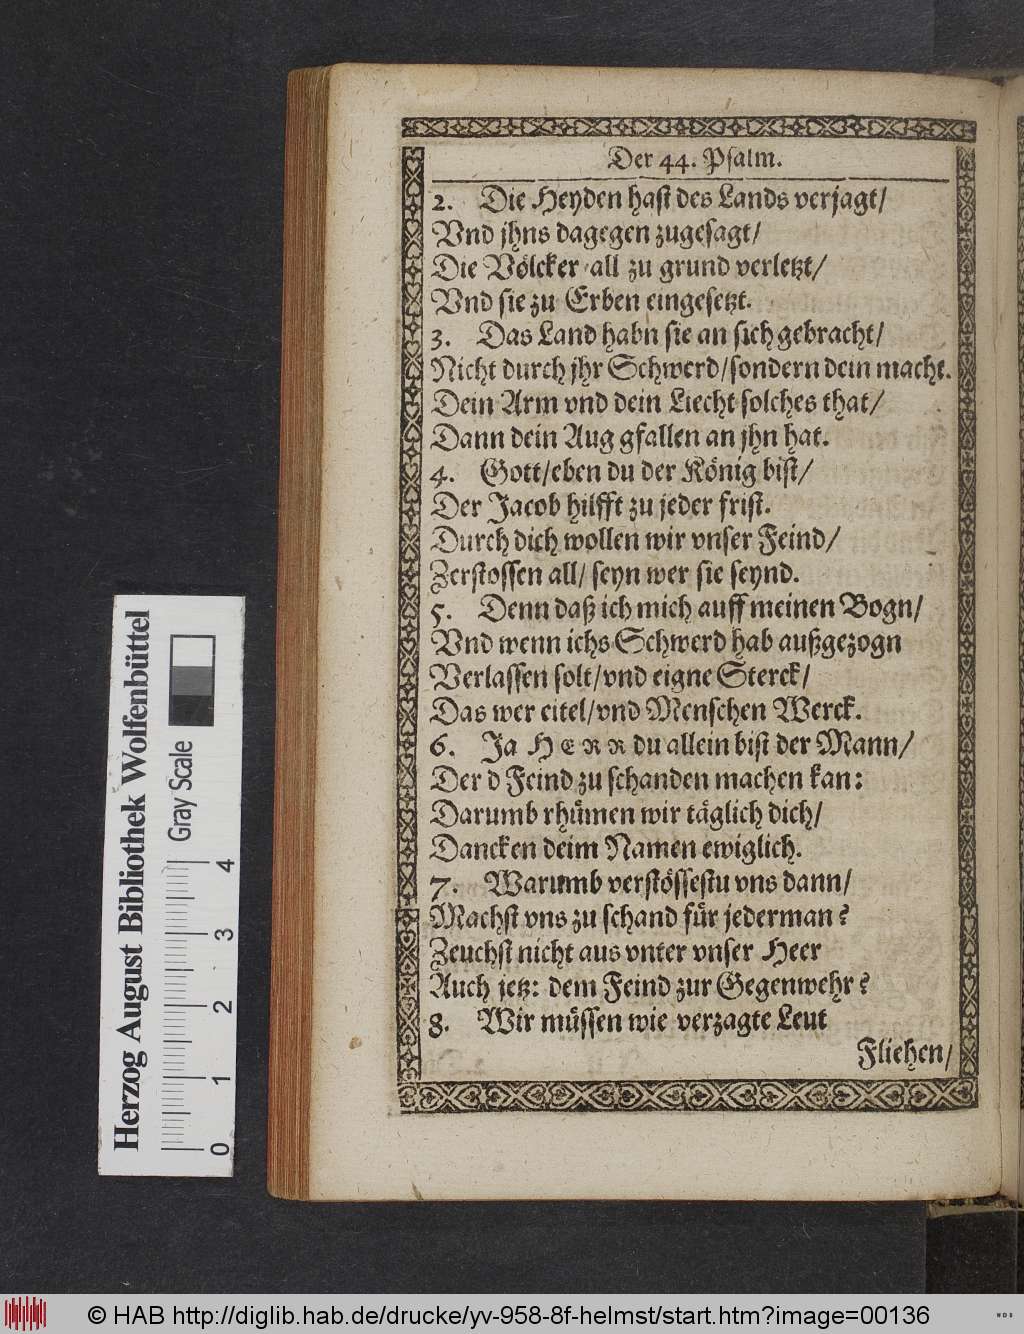 Der 44. Psalm.
2. Die Heyden hast des Lands verjagt/
Vnd jhns dagegen zugesagt/
Die Völcker all zu grund verletzt/
Vnd sie zu Erben eingesetzt.
3. Das Land habn sie an sich gebracht/
Nicht durch jhr Schwerd/sondern dein macht.
Dein Arm vnd dein Liecht solches that/
Dann dein Aug gfallen an jhn hat.
4. Gott/eben du der König bist/
Der Jacob hilfft zu jeder frist.
Durch dich wollen wir vnser Feind/
Zerstossen all/ seyn wer sie seynd.
5. Denn daß ich mich auff meinen Bogn/
Vnd wenn ichs Schwerd hab außgezogn
Verlassen solt/vnd eigne Sterck/
Das wer eitel/vnd Menschen Werck.
6. Ja HERR du allein bist der Mann/
Der d Feind zu schanden machen kan:
Darumb rhümen wir täglich dich/
Dancken deim Namen ewiglich.
7. Warumb verstössestu vns dann/
Machst vns zu schand für jederman?
Zeuchst nicht aus vnter vnser Heer
Auch jetz: dem Feind zur Gegenwehr?
8. Wir müssen wie verzagte Leut
Fliehen/
Herzog August Bibliothek Wolfenbüttel
Gray Scale
0 1 2 3 4
© HAB http://diglib.hab.de/drucke/yv-958-8f-helmst/start.htm?image=00136